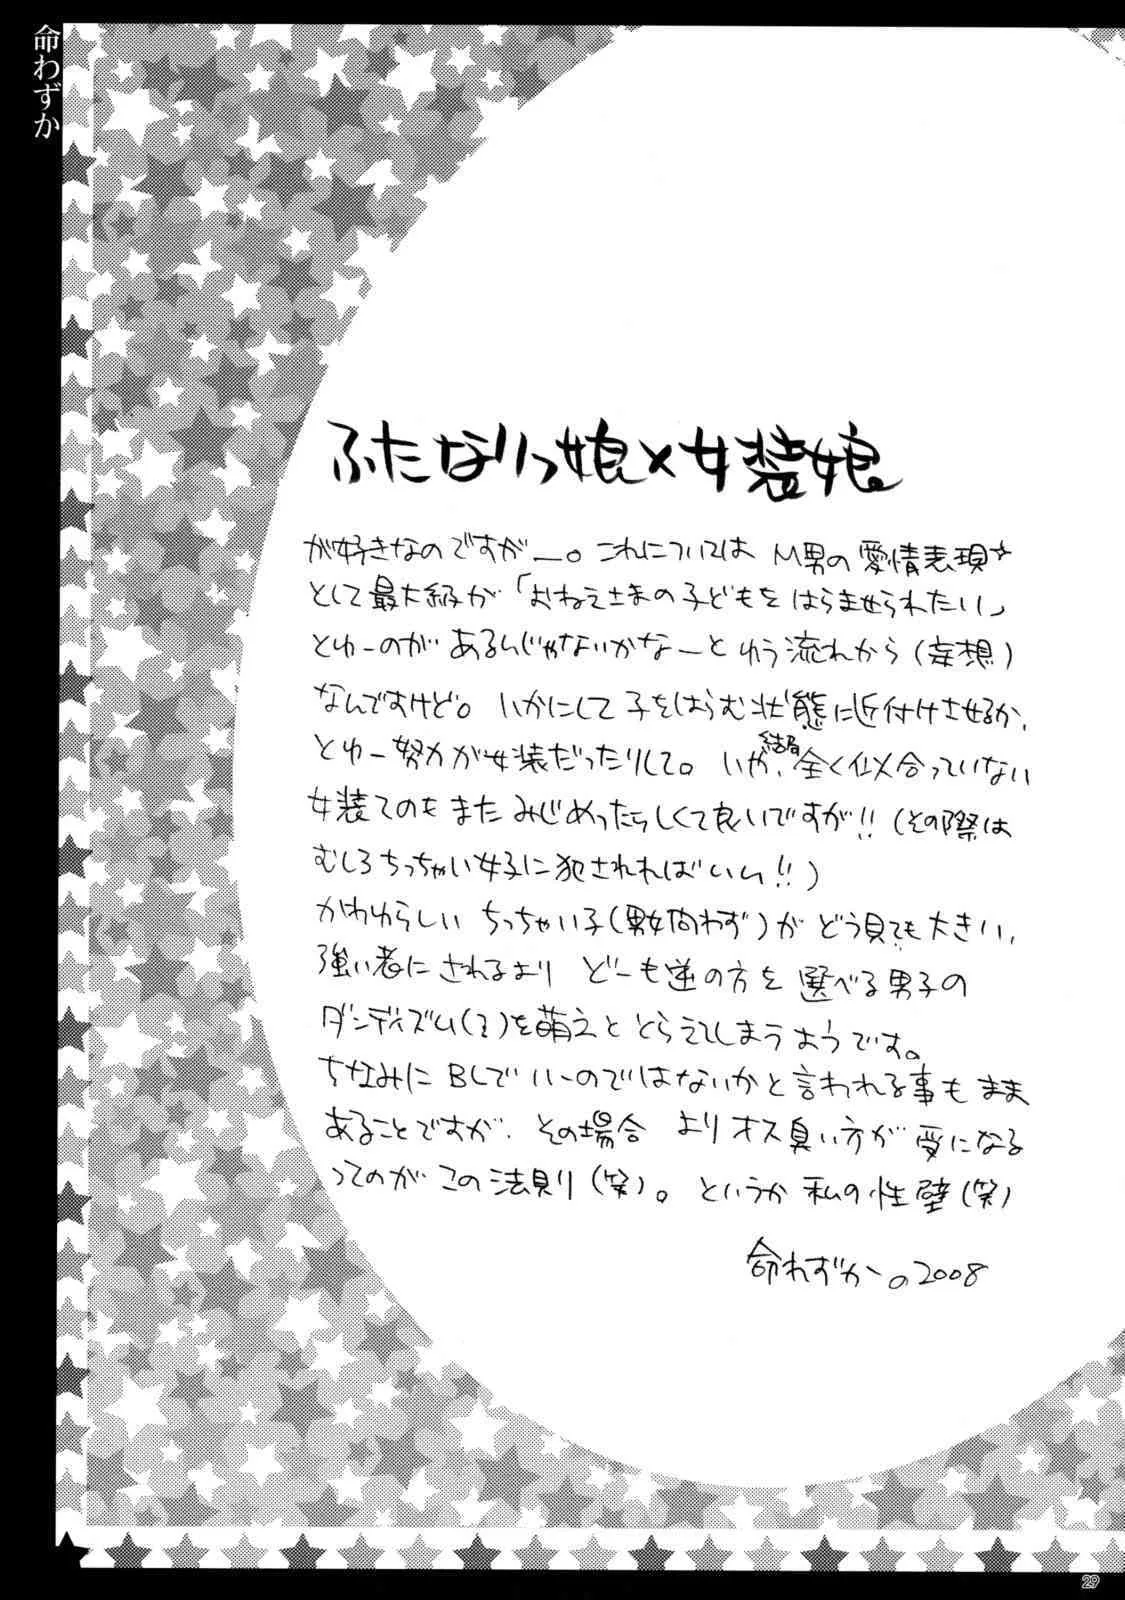 命わずか
ふたなりっ娘×女装娘。
が好きなのですがー。これについては M男の愛情表現☆
として最大級が「おねえさまの子どもをはらませられたい」
とゆーのがあるんじゃないかなーとゆう流れから(妄想)
なんですけど。いかにして子をはらむ状態に近付けさせるか、
とゆー努力が女装だったりして。いや、結局全く似合っていない
女装てのもまたみじめったらしくて良いですが!!(その際は
むしろちっちゃい女子に犯されればいい!!)
かわゆらしいちっちゃい子(男女問わず)がどう見ても大きい、
強い者にされるより どーも逆の方を選べる男子の
ダンディズム(?)を萌えととらえてしまうようです。
ちなみにBLでいーのではないかと言われる事もまま
あることですが、その場合 よりオス臭い方が受になる
ってのがこの法則(笑)。というか私の性壁(笑)
命わずか の2008
29